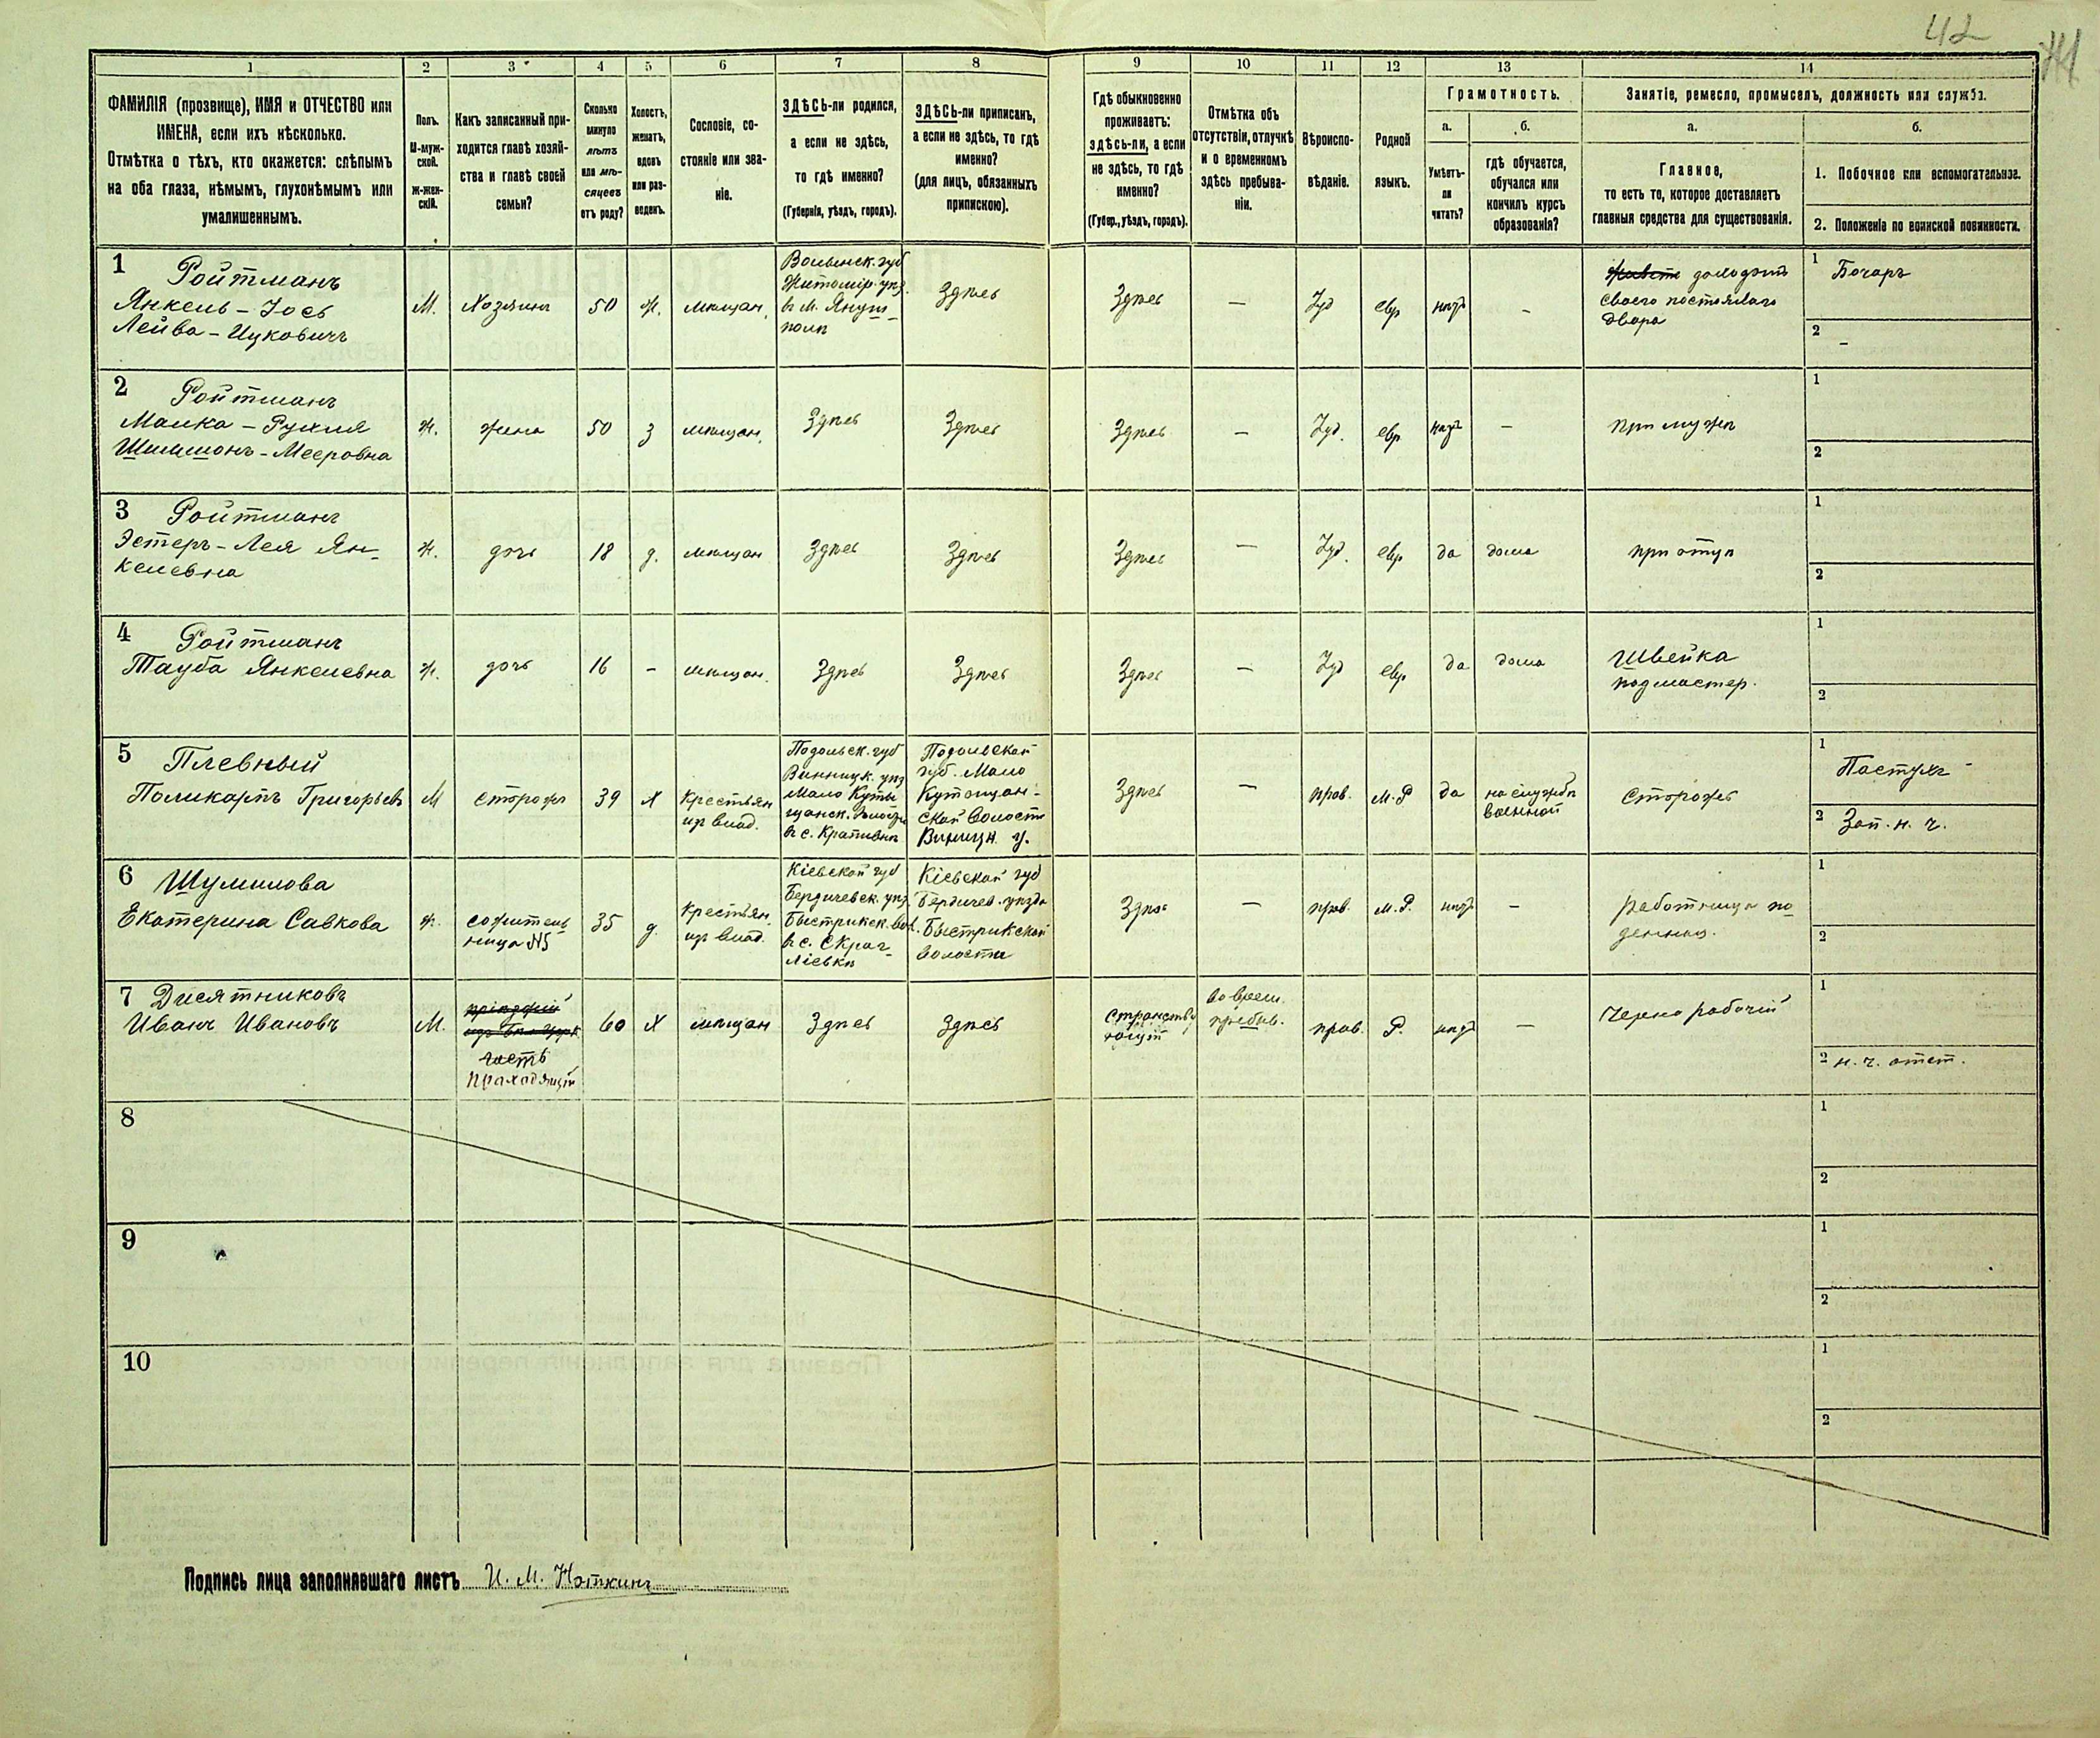 42
1 2 3 4 5 6 7 8 9 10 11 12 13 14
ФАМИЛІЯ (прозвище), ИМЯ и ОТЧЕСТВО или
ИМЕНА, если ихъ нѣсколько.
Отмѣтка о тѣхъ, кто окажется: слѣпымъ
на оба глаза, нѣмымъ, глухонѣмымъ или
умалишеннымъ.
Полъ.
М-муж-
ской.
Ж-жен-
скій.
Какъ записанный при-
ходится главѣ хозяй-
ства и главѣ своей
семьи?
Сколько
минуло
лѣтъ
или мѣ-
сяцевъ
отъ роду?
Холостъ,
женатъ,
вдовъ
или раз-
веденъ.
Сословіе, со-
стояніе или зва-
ніе.
ЗДѢСЬ-ли родился,
а если не здѣсь,
то гдѣ именно?
(Губернія, уѣздъ, городъ).
ЗДѢСЬ-ли приписанъ,
а если не здѣсь, то гдѣ
именно?
(для лицъ, обязанныхъ
припискою).
Гдѣ обыкновенно
проживаетъ:
здѣсь-ли, а если
не здѣсь, то гдѣ
именно?
(Губер., уѣздъ, городъ).
Отмѣтка объ
отсутствіи, отлучкѣ
и о временномъ
здѣсь пребыва-
ніи.
Вѣроиспо-
вѣданіе.
Родной
языкъ.
Грамотность.
а.
Умѣетъ-
ли
читать?
б.
гдѣ обучается,
обучался или
кончилъ курсъ
образованія?
Занятіе, ремесло, промыселъ, должность или служба.
а.
Главное,
то есть то, которое доставляетъ
главныя средства для существованія.
б.
1. Побочное или вспомогательное.
2. Положеніе по воинской повинности.
1 Ройтманъ
Янкель-Іось
Лейба-Ицковичъ
М.
Хозяинъ
50
Ж.
мѣщан.
Волынск. губ
Житомір. уѣз.
въ м. Януш-
полѣ
Здѣсь
Здѣсь
—
Іуд
евр
нѣтъ
—
доходомъ
своего постоялаго
двора
1 Бочаръ
2 -
2 Ройтманъ
Малка-Рухля
Шимшонъ-Мееровна
Ж.
жена
50
З
мѣщан.
Здѣсь
Здѣсь
Здѣсь
—
Іуд.
евр
нѣтъ
—
при мужѣ
1
2
3 Ройтманъ
Эстеръ-Лея Ян-
келевна
Ж.
дочь
18
д.
мѣщан
Здѣсь
Здѣсь
Здѣсь
—
Іуд.
евр
да
дома
при отцѣ
1
2
4 Ройтманъ
Тауба Янкелевна
Ж.
дочь
16
-
мѣщан.
Здѣсь
Здѣсь
Здѣсь
—
Іуд
евр
да
дома
Швейка
подмастер.
1
2
5 Плевный
Поликарпъ Григорьевъ
М
сторожъ
39
Х
Крестьян
изъ влад.
Подольск. губ
Винницк. уѣз
Мало Куты-
щанск. волости
въ с. Крапивнѣ
Подольской
губ. Мало
Кутищан-
ской волости
Винницк. у.
Здѣсь
—
прав.
М.Р
да
на службѣ
военной
Сторожъ
1 Пастухъ
2 Зап. н. ч.
6 Шумилова
Екатерина Савкова
Ж.
сожитель
ница №5
35
д.
Крестьян.
изъ влад.
Кіевской губ
Бердичевск. уѣз.
Быстрикск. вол.
въ с. Скраг-
лієвкѣ
Кіевской губ
Бердичев. уѣзда
Быстрикской
волости
Здѣсь
—
прав.
М.Р.
нѣтъ
—
работница по
денная.
1
2
7 Дисятниковъ
Иванъ Ивановъ
М.
гость
проходящій
60
Х
мѣщан
Здѣсь
Здѣсь
Странству
ющій
во врем.
пребыв.
прав.
Р.
нѣтъ
—
Черно рабочій
1
2 н. ч. отст.
8
1
2
9
1
2
10
1
2
Подпись лица заполнявшаго листъ И. М.